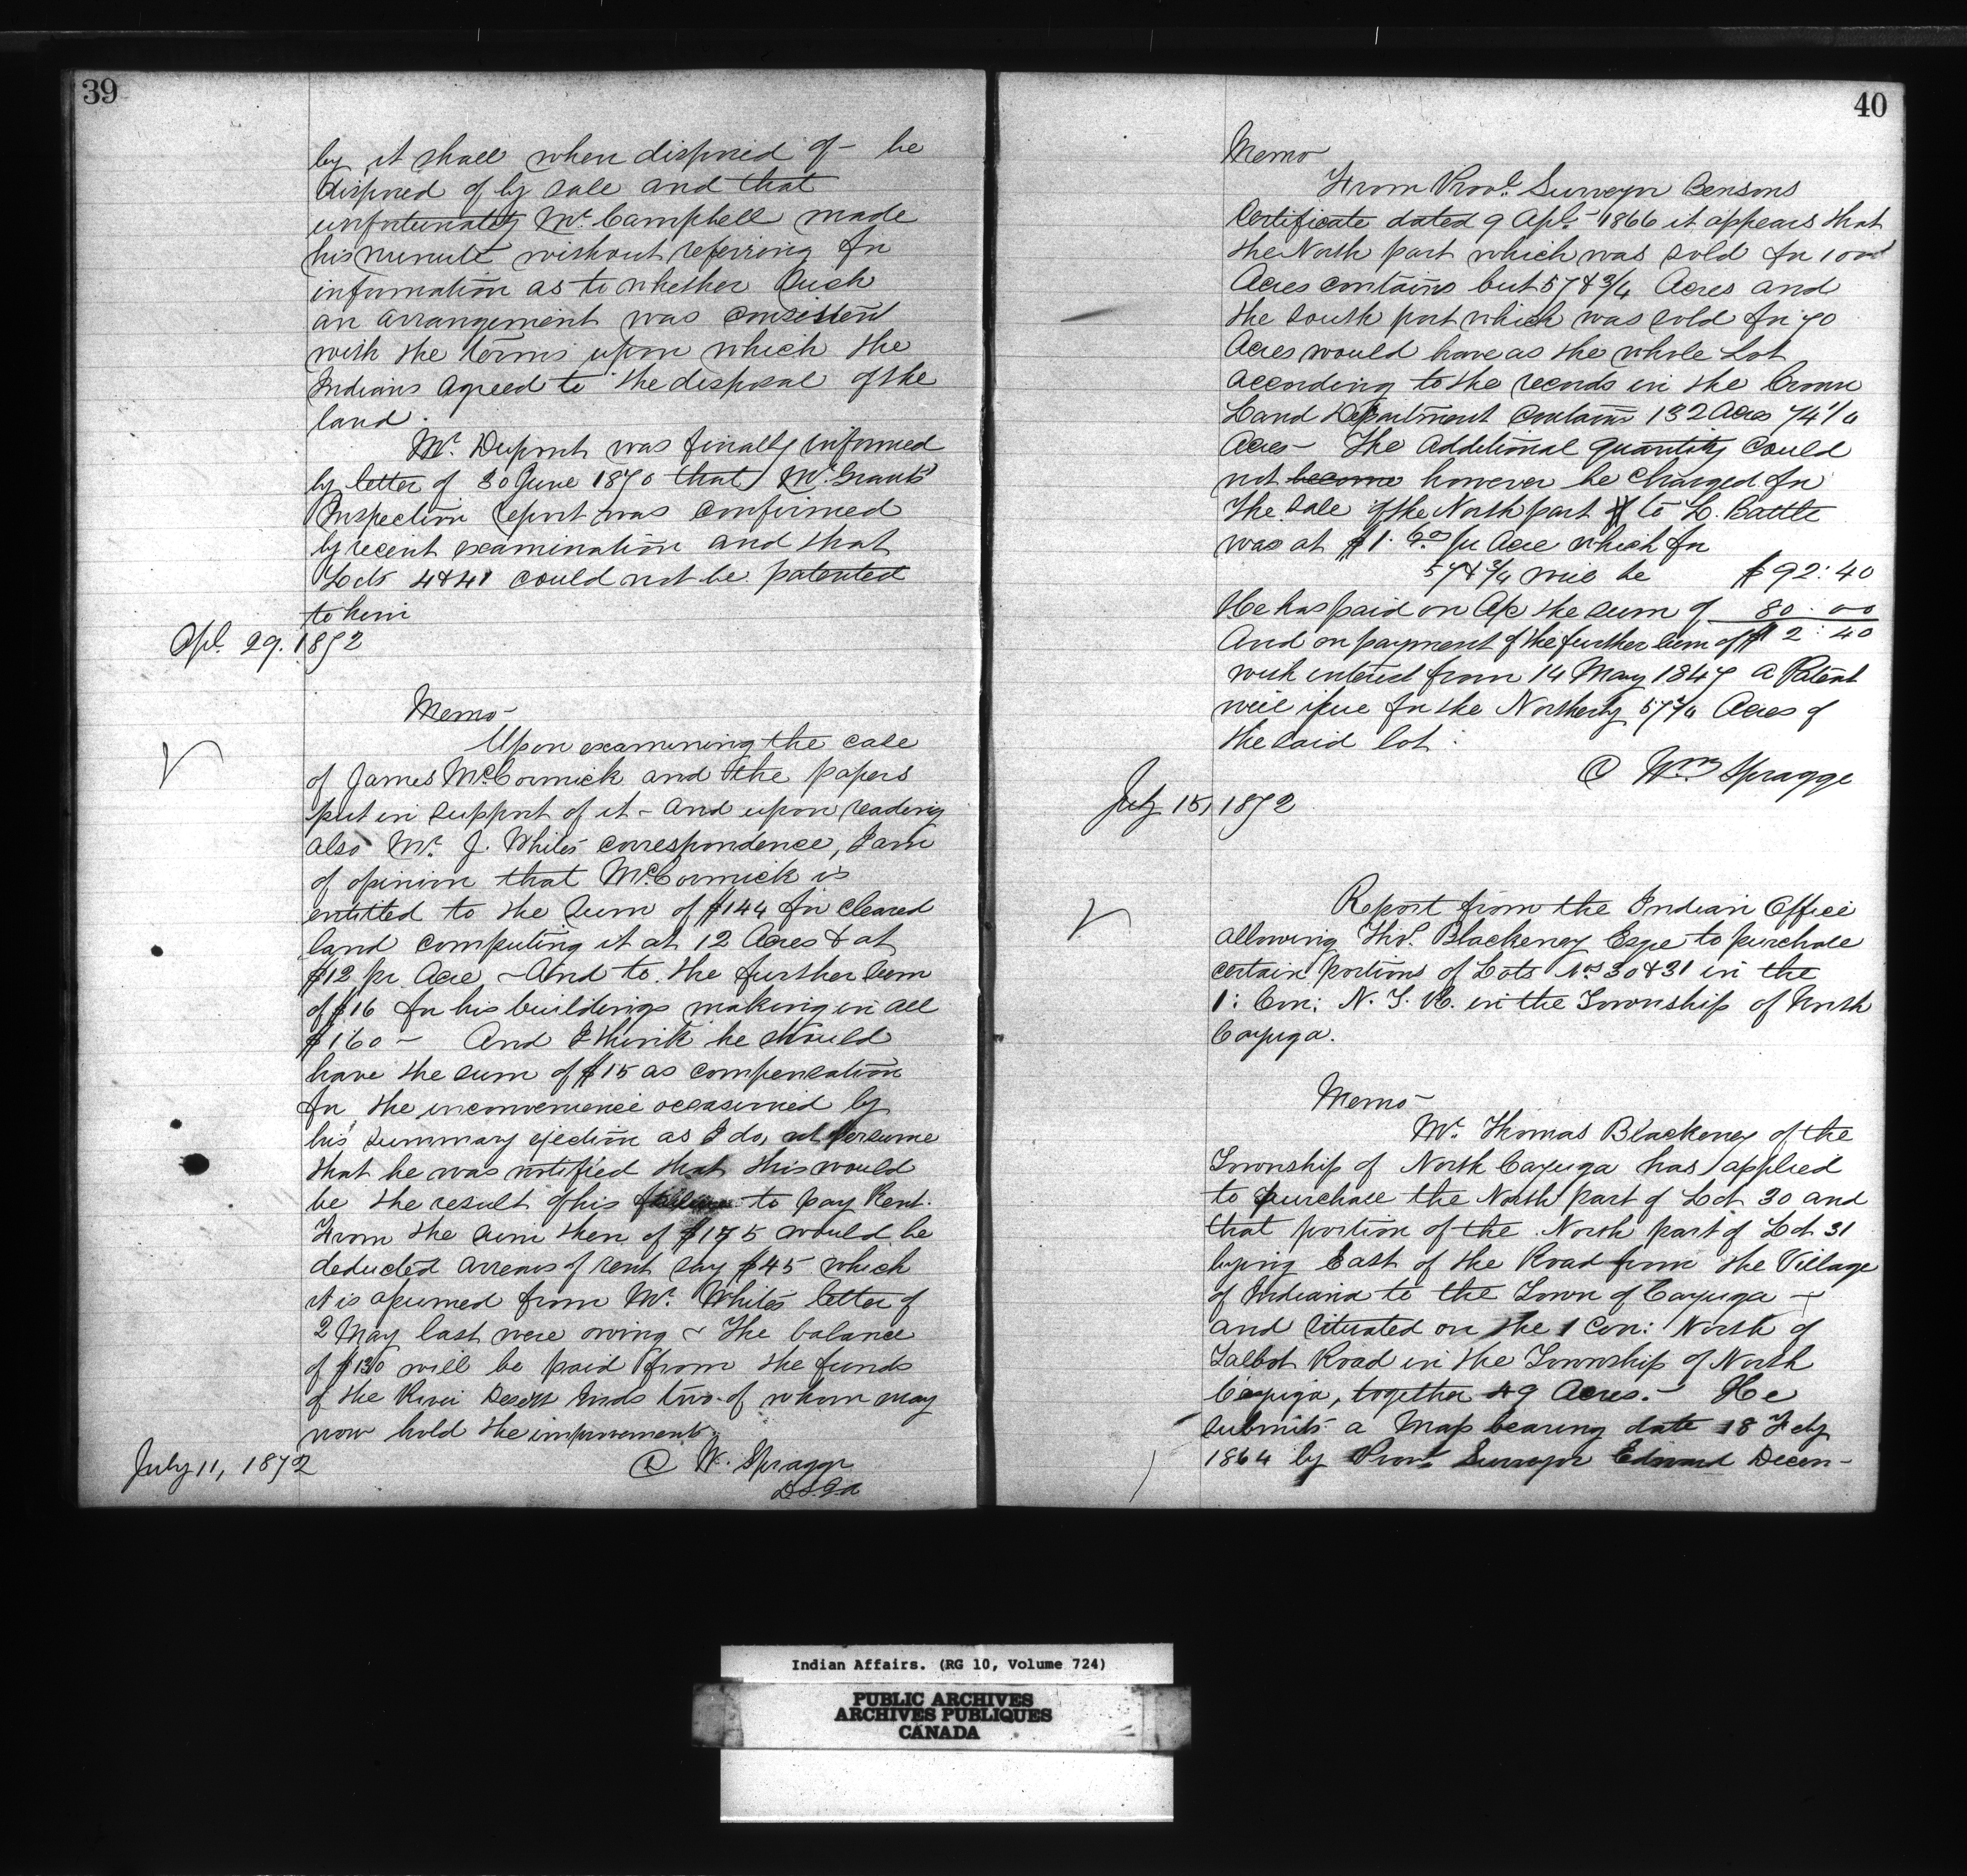 39
by it shall when disposed of - be
disposed of by sale and that
unfortunately Mr. Campbell made
his minute without referring for
information as to whether such
an arrangement was consistent
with the terms upon which the
Indians agreed to the disposal of the
land.
Mr. Dupont was finally informed
by letter of 30 June 1870 that Mr. Grants
Inspection report was confirmed
by recent examination and that
Lots 4 & 41 could not be patented
to him
Apl. 29. 1872
Memo -
Upon examining the case
of James McCormick and the papers
put in support of it - and upon reading
also Mr. J. White's correspondence, I am
of opinion that McCormick is
entitled to the sum of $144 for cleared
land computing it at 12 Acres & at
$12 pr. Acre - And to the further sum
of $16 for his buildings making in all
$160 - And I think he should
have the sum of $15 as compensation
for the inconvenience occasioned by
his summary ejection as I do not presume
that he was notified that this would
be the result of his failure to pay Rent.
From the sum then of $175 would be
deducted arrears of rent say $45 which
it is assumed from Mr. White's letter of
2 May last were owing - The balance
of $130 will be paid from the funds
of the River Desert Inds two of whom may
now hold the improvements.
July 11, 1872
W. Spragge
D.S.I.A
40
Memo
From Provl. Surveyor Bensons
Certificate dated 9 Apl. 1866 it appears that
the North part which was sold for 100
Acres contains but 57 & 3/4 Acres and
the South part which was sold for 70
Acres would have as the whole Lot
according to the records in the Crown
Land Department contains 132 Acres 74 1/4
Acres - The additional quantity could
not become however be charged for
The sale of the North part to L. Battle
was at $1.60/ pr Acre which for
57 & 3/4 will be $92:40
He has paid on A/c the sum of 80.00
And on payment of the further sum of $12:40
with interest from 14 May 1847 a Patent
will issue for the Northerly 57 3/4 Acres of
the said lot:
Wm Spragge
July 15, 1872
Report from the Indian Office
allowing Thos. Blackeney Esqe to purchase
certain portions of Lots Nos 30 & 31 in the
1: Con: N. T. R. in the Township of North
Cayuga.
Memo -
Mr. Thomas Blackeney of the
Township of North Cayuga has applied
to purchase the North part of Lot 30 and
that portion of the North part of Lot 31
lying East of the Road from the Village
of Indiana to the Town of Cayuga -
and situated on the 1 Con: North of
Talbot Road in the Township of North
Cayuga, together 49 Acres. - He
submits a Map bearing date 18 Feby
1864 by Provl. Surveyor Edmund Decew-
Indian Affairs. (RG 10, Volume 724)
PUBLIC ARCHIVES
ARCHIVES PUBLIQUES
CANADA